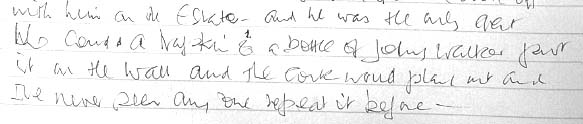 with him on the Estate - and he was the only
who could a napkin & a bottle of Johny Walker
it on the wall and the cork would and
I've never seen any one repeat it before -